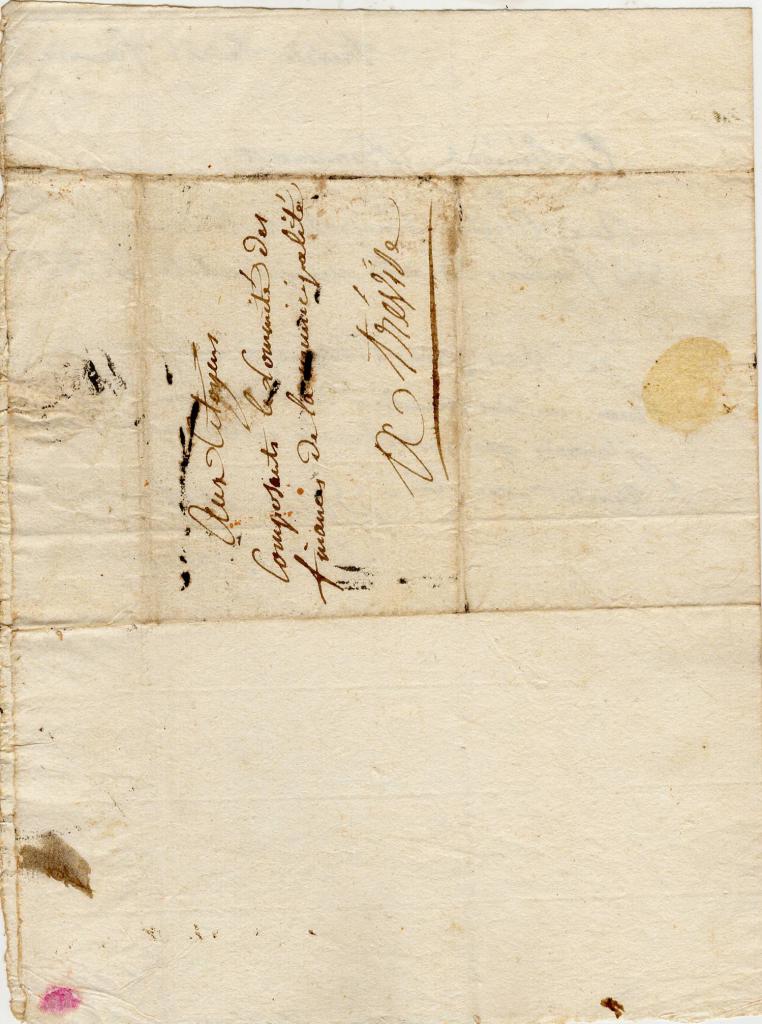 Aux Citoyens
Composants le Commité des
finances de la municipalité
A Trévise